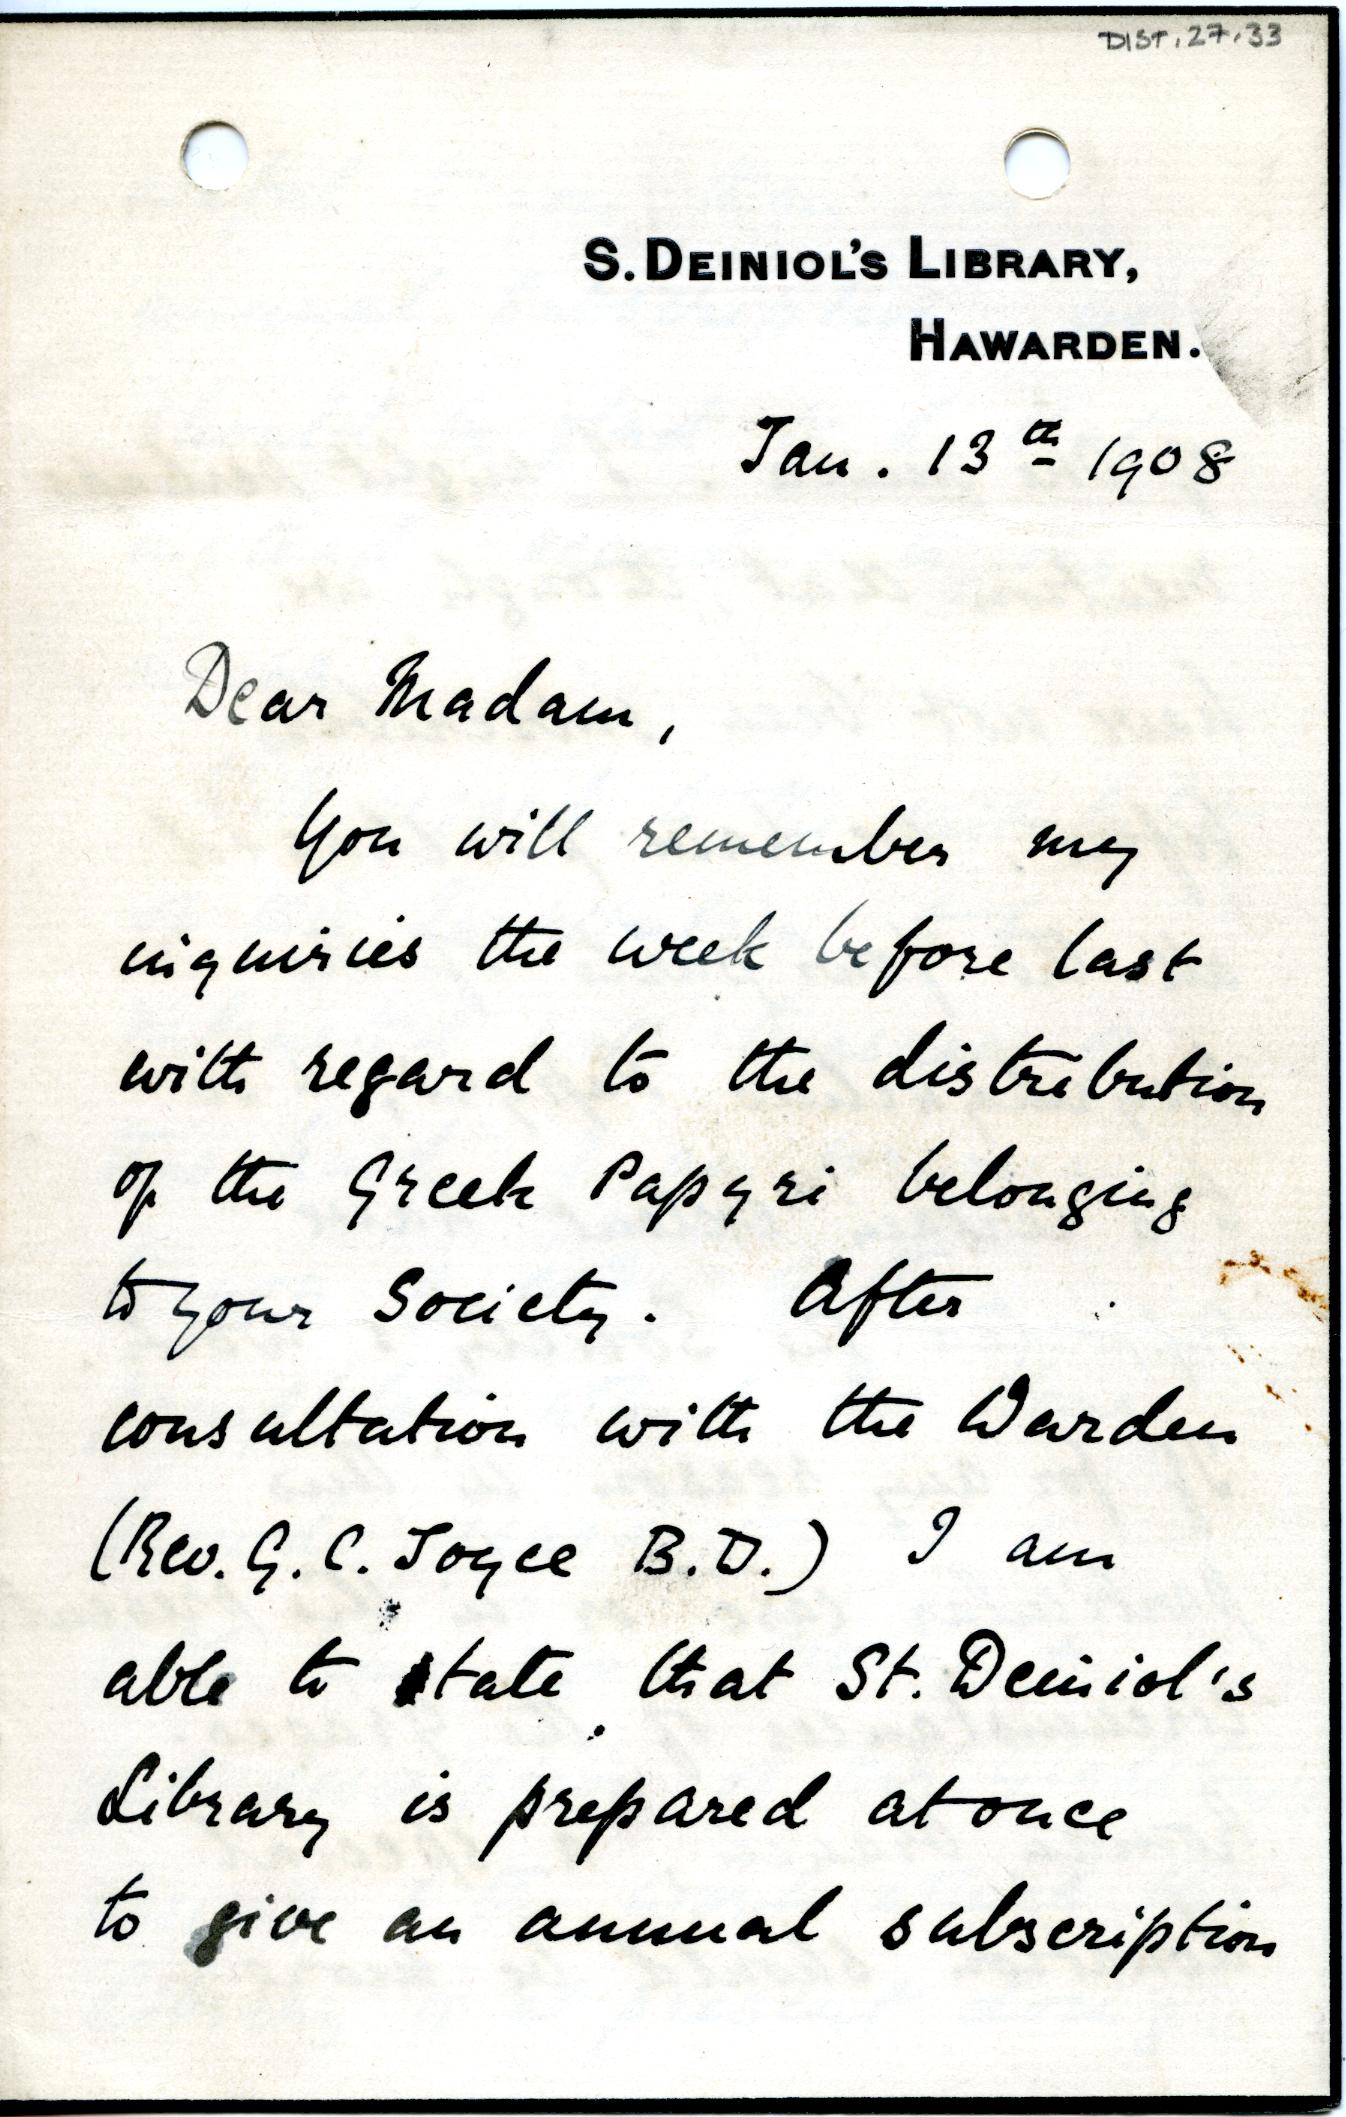 DIST.27.33
S. DEINIOL'S LIBRARY,
HAWARDEN.
Jan. 13th 1908
Dear Madam,
You will remember my
inquiries the week before last
with regard to the distribution
of the Greek Papyri belonging
to your Society. After
consultation with the Warden
(Rev. G. C. Joyce B.D.) I am
able to state that St. Deiniol's
Library is prepared at once
to give an annual subscription